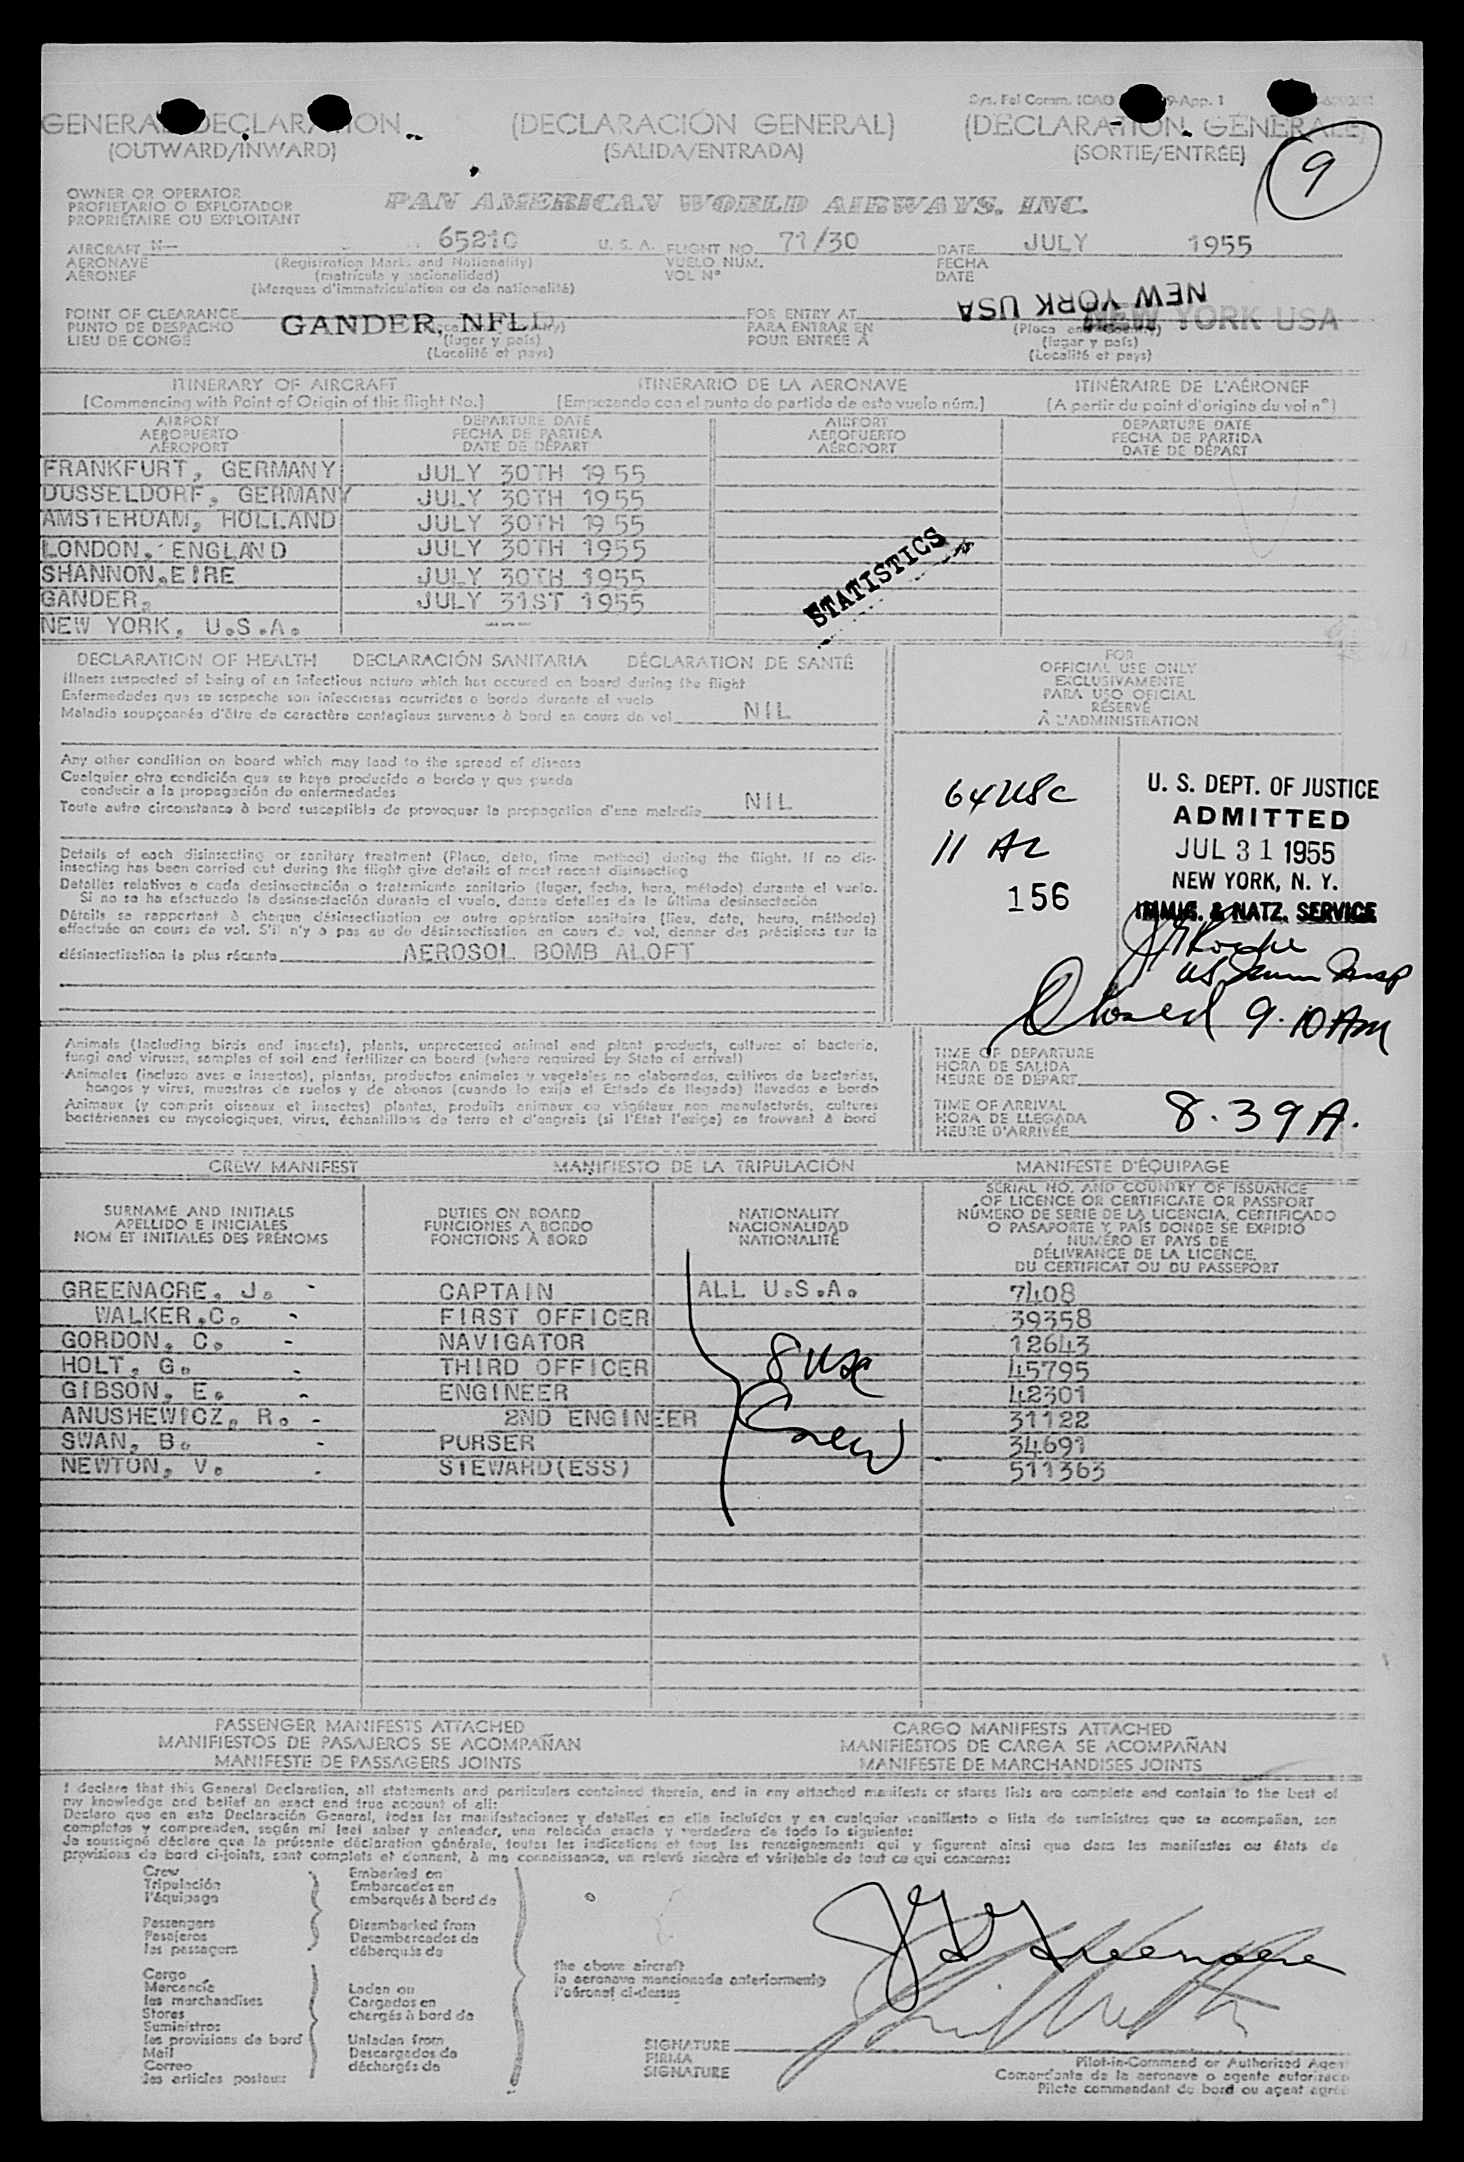 Sys. Fal Comm. ICAO 9-App. 1
GENERAL DECLARATION (DECLARACIÓN GENERAL) (DECLARATION GENERALE)
(OUTWARD/INWARD) (SALIDA/ENTRADA) (SORTIE/ENTRÉE)
9
OWNER OR OPERATOR
PROPIETARIO O EXPLOTADOR
PROPRIÉTAIRE OU EXPLOITANT
PAN AMERICAN WORLD AIRWAYS, INC.
AIRCRAFT N- 6521C U. S. A. FLIGHT NO. 71/30 DATE JULY 1955
AERONAVE (Registration Marks and Nationality) VUELO NÚM. FECHA
AÉRONEF (matrícula y nacionalidad) VOL N° DATE
(Marques d'immatriculation ou de nationalité)
NEW YORK USA
POINT OF CLEARANCE GANDER, NFLD FOR ENTRY AT NEW YORK USA
PUNTO DE DESPACHO PARA ENTRAR EN (Place and Country)
LIEU DE CONGÉ (lugar y país) POUR ENTRÉE À (lugar y país)
(Localité et pays) (Localité et pays)
ITINERARY OF AIRCRAFT ITINERARIO DE LA AERONAVE ITINÉRAIRE DE L'AÉRONEF
(Commencing with Point of Origin of this flight No.) (Empezando con el punto de partida de este vuelo núm.) (A partir du point d'origine du vol n°)
AIRPORT DEPARTURE DATE AIRPORT DEPARTURE DATE
AEROPUERTO FECHA DE PARTIDA AEROPUERTO FECHA DE PARTIDA
AÉROPORT DATE DE DÉPART AÉROPORT DATE DE DÉPART
FRANKFURT, GERMANY JULY 30TH 1955
DUSSELDORF, GERMANY JULY 30TH 1955
AMSTERDAM, HOLLAND JULY 30TH 1955
LONDON, ENGLAND JULY 30TH 1955
SHANNON,EIRE JULY 30TH 1955
GANDER, JULY 31ST 1955
NEW YORK, U.S.A. ---
STATISTICS
DECLARATION OF HEALTH DECLARACIÓN SANITARIA DÉCLARATION DE SANTÉ
Illness suspected of being of an infectious nature which has occured on board during the flight
Enfermedades que se sospeche son infecciosas ocurridas a bordo durante el vuelo
Maladie soupçonnée d'être de caractère contagieux survenue à bord en cours de vol NIL
FOR
OFFICIAL USE ONLY
EXCLUSIVAMENTE
PARA USO OFICIAL
RÉSERVÉ
À L'ADMINISTRATION
Any other condition on board which may lead to the spread of disease
Cualquier otra condición que se haya producido a bordo y que pueda
conducir a la propagación de enfermedades
Toute autre circonstance à bord susceptible de provoquer la propagation d'une maladie NIL
64 USC
11 AL
156
U. S. DEPT. OF JUSTICE
ADMITTED
JUL 31 1955
NEW YORK, N. Y.
IMMIG. & NATZ. SERVICE
US Immn Insp
Closed 9.10 AM
Details of each disinsecting or sanitary treatment (Place, date, time method) during the flight. If no dis-
insecting has been carried out during the flight give details of most recent disinsecting
Detalles relativos a cada desinsectación o tratamiento sanitario (lugar, fecha, hora, método) durante el vuelo.
Si no se ha efectuado la desinsectación durante el vuelo, dense detalles de la última desinsectación
Détails se rapportant à chaque désinsectisation ou autre opération sanitaire (lieu, date, heure, méthode)
effectuée en cours de vol. S'il n'y a pas eu de désinsectisation en cours de vol, donner des précisions sur la
désinsectisation la plus récente AEROSOL BOMB ALOFT
Animals (including birds and insects), plants, unprocessed animal and plant products, cultures of bacteria,
fungi and viruses, samples of soil and fertilizer on board (where required by State of arrival)
Animales (incluso aves e insectos), plantas, productos animales y vegetales no elaborados, cultivos de bacterias,
hongos y virus, muestras de suelos y de abonos (cuando lo exija el Estado de llegada) llevados a bordo
Animaux (y compris oiseaux et insectes) plantes, produits animaux ou végétaux non manufacturés, cultures
bactériennes ou mycologiques, virus, échantillons de terre et d'engrais (si l'État l'exige) se trouvant à bord
TIME OF DEPARTURE
HORA DE SALIDA
HEURE DE DÉPART
TIME OF ARRIVAL
HORA DE LLEGADA
HEURE D'ARRIVÉE 8.39 A.
CREW MANIFEST MANIFIESTO DE LA TRIPULACIÓN MANIFESTE D'ÉQUIPAGE
SURNAME AND INITIALS
APELLIDO E INICIALES
NOM ET INITIALES DES PRÉNOMS
DUTIES ON BOARD
FUNCIONES A BORDO
FONCTIONS À BORD
NATIONALITY
NACIONALIDAD
NATIONALITÉ
SERIAL NO. AND COUNTRY OF ISSUANCE
OF LICENCE OR CERTIFICATE OR PASSPORT
NÚMERO DE SERIE DE LA LICENCIA, CERTIFICADO
O PASAPORTE Y PAÍS DONDE SE EXPIDIÓ
NUMÉRO ET PAYS DE
DÉLIVRANCE DE LA LICENCE,
DU CERTIFICAT OU DU PASSEPORT
GREENACRE, J. - CAPTAIN ALL U.S.A. 7408
WALKER,C. - FIRST OFFICER 39358
GORDON, C. - NAVIGATOR 12643
HOLT, G. - THIRD OFFICER 45795
GIBSON, E. - ENGINEER 42301
ANUSHEWICZ, R. - 2ND ENGINEER 31122
SWAN, B. - PURSER 34691
NEWTON, V. - STEWARD(ESS) 511363
8 USC
Crew
PASSENGER MANIFESTS ATTACHED CARGO MANIFESTS ATTACHED
MANIFIESTOS DE PASAJEROS SE ACOMPAÑAN MANIFIESTOS DE CARGA SE ACOMPAÑAN
MANIFESTE DE PASSAGERS JOINTS MANIFESTE DE MARCHANDISES JOINTS
I declare that this General Declaration, all statements and particulars contained therein, and in any attached manifests or stores lists are complete and contain to the best of
my knowledge and belief an exact and true account of all:
Declaro que en esta Declaración General, todas las manifestaciones y detalles en ella incluídos y en cualquier manifiesto o lista de suministros que se acompañan, son
completos y comprenden, según mi leal saber y entender, una relación exacta y verdadera de todo lo siguiente:
Je soussigné déclare que la présente déclaration générale, toutes les indications et tous les renseignements qui y figurent ainsi que dans les manifestes ou états de
provisions de bord ci-joints, sont complets et donnent, à ma connaissance, un relevé sincère et véritable de tout ce qui concerne:
Crew Embarked on
Tripulación Embarcados en
l'équipage embarqués à bord de
Passengers Disembarked from
Pasajeros Desembarcados de
les passagers débarqués de
the above aircraft
la aeronave mencionada anteriormente
l'aéronef ci-dessus
Cargo
Mercancía Laden on
les marchandises Cargados en
Stores chargés à bord de
Suministros
les provisions de bord Unladen from
Mail Descargados de
Correo déchargés de
les articles postaux
J Greenacre
SIGNATURE
FIRMA
SIGNATURE
Pilot-in-Command or Authorized Agent
Comandante de la aeronave o agente autorizado
Pilote commandant de bord ou agent agréé